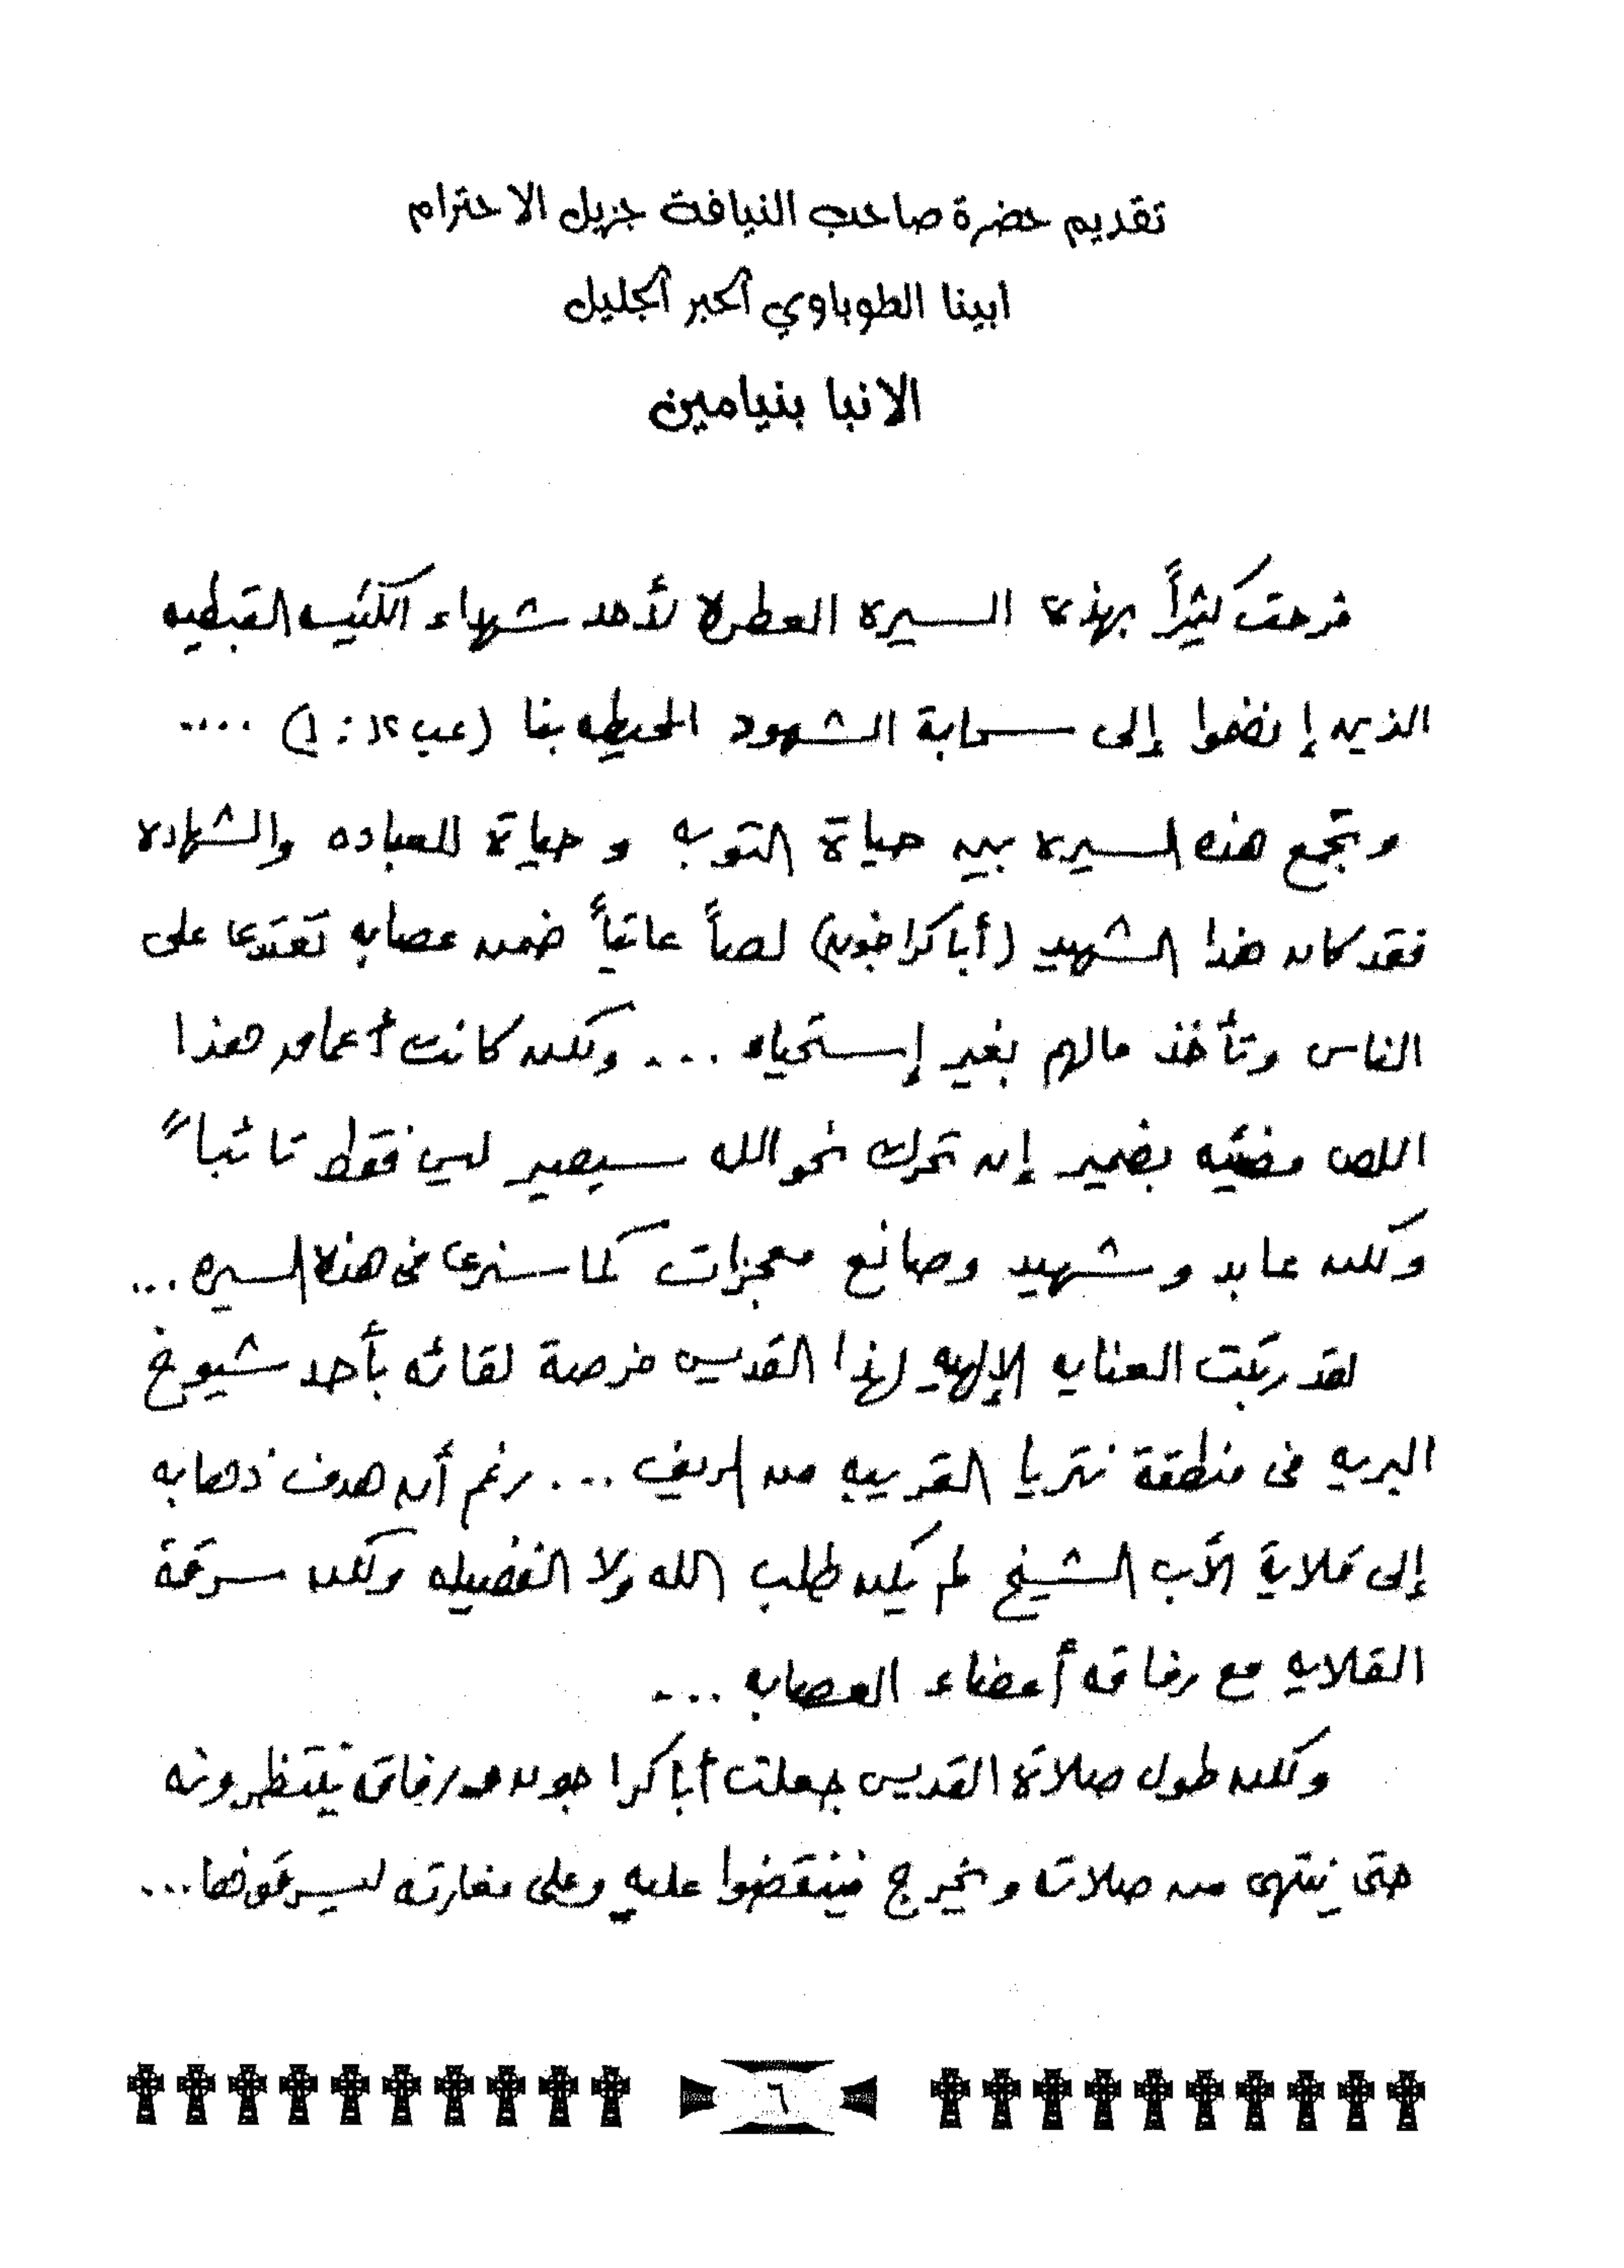 تقديم حضرة صاحب النيافة جزيل الاحترام
ابينا الطوباوي الحبر الجليل
الانبا بنيامين
فرحت كثيراً بهذه السيره العطره لأحد شهداء الكنيسه القبطيه
الذين إنضموا إلى سحابة الشهود المحيطه بنا (عب ١٢ : ١) ....
وتجمع هذه السيره بين حياة التوبه و حياة العباده والشهاده
فقد كان هذا الشهيد (أباكراجون) لصاً عاتياً ضمن عصابه تعتدى على
الناس وتأخذ مالهم بغير إستحياء ... ولكن كانت أعماق هذا
اللص مضيئه بضمير إن تحرك نحو الله سيصير ليس فقط تائباً
ولكن عابد وشهيد وصانع معجزات كما سنرى فى هذه السيره ...
لقد رتبت العنايه الإلهيه لهذا القديس فرصة لقائه بأحد شيوخ
البريه فى منطقة نتريا القريبه من الريف ... رغم أن هدف ذهابه
إلى قلاية الأب الشيخ لم يكن طلب الله ولا الفضيله ولكن سرقة
القلايه مع رفاقه أعضاء العصابه ...
ولكن طول صلاة القديس جعلت أباكراجون ورفاقه ينتظرونه
حتى ينتهى من صلاته ويخرج فينقضوا عليه وعلى مغارته ليسرقوها ...
٦